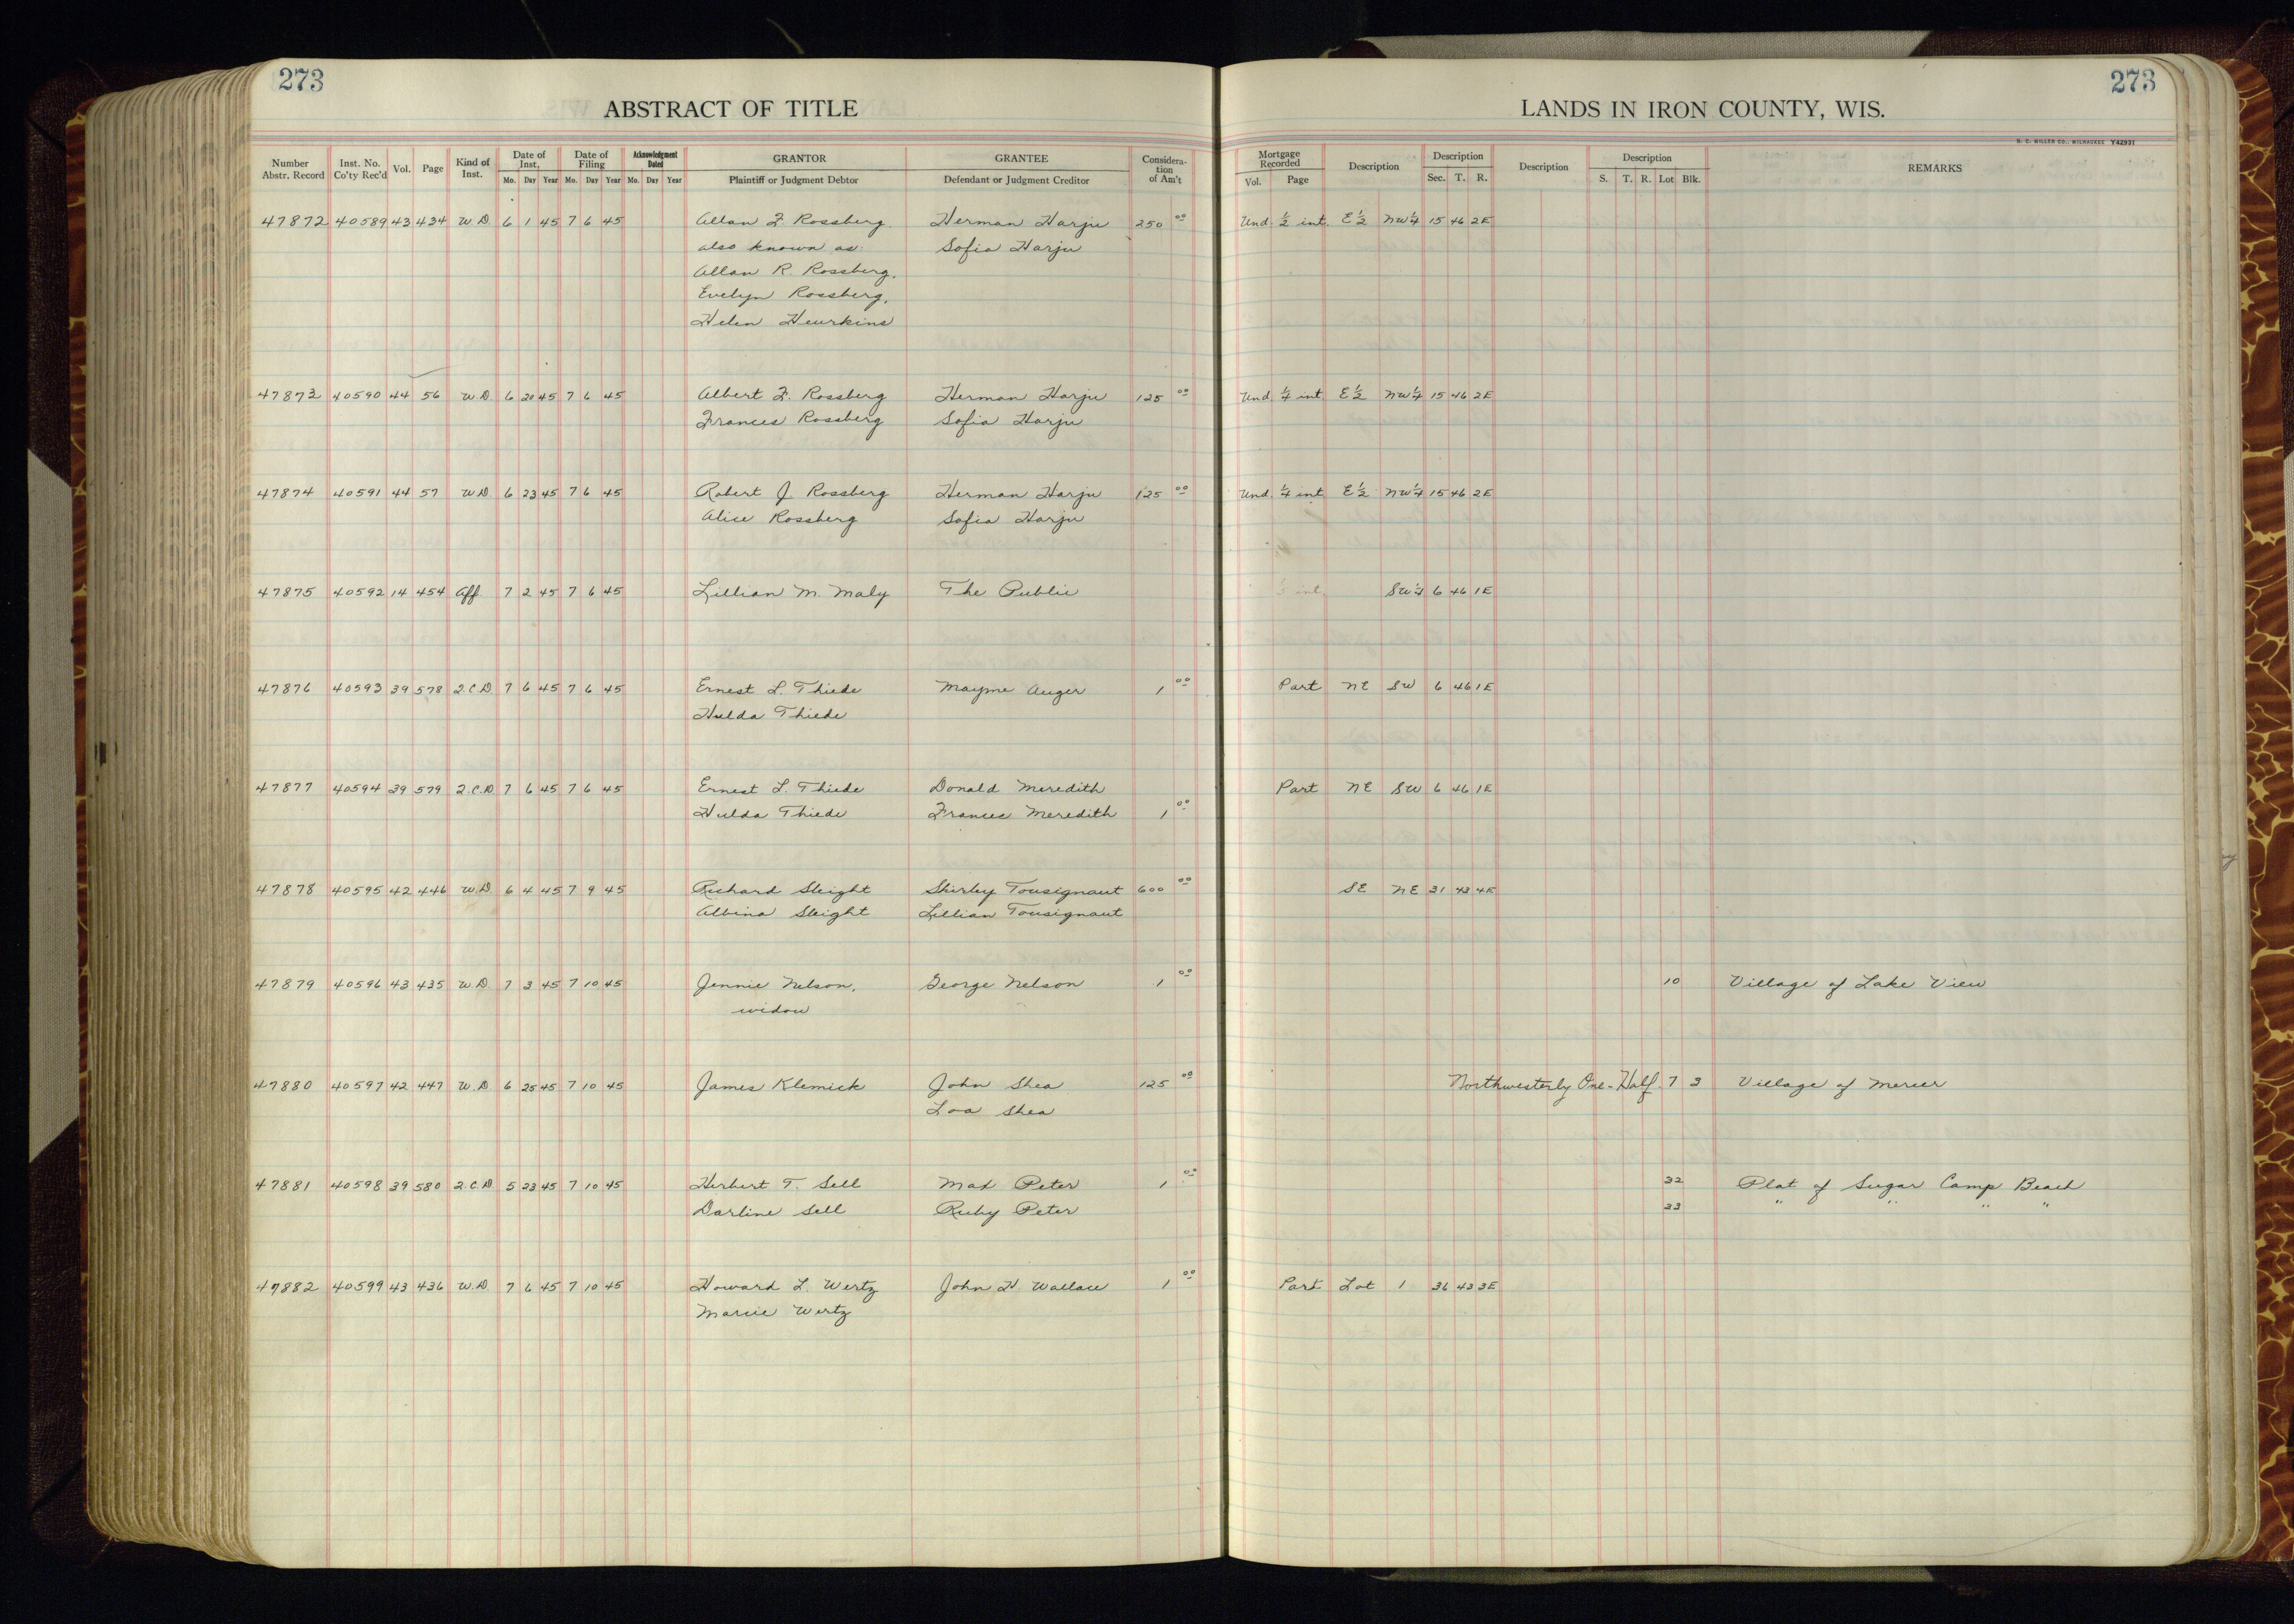 273
ABSTRACT OF TITLE
Number Abstr. Record | Inst. No. Co'ty Rec'd | Vol. | Page | Kind of Inst. | Date of Inst. Mo. Day Year | Date of Filing Mo. Day Year | Acknowledgment Dated Mo. Day Year | GRANTOR Plaintiff or Judgment Debtor | GRANTEE Defendant or Judgment Creditor | Consideration of Am't
273
LANDS IN IRON COUNTY, WIS.
H. C. MILLER CO., MILWAUKEE Y42931
Mortgage Recorded Vol. Page | Description | Description Sec. T. R. | Description | Description S. T. R. Lot Blk. | REMARKS
47872 40589 43 434 W.D. 6 1 45 7 6 45 Allan F. Rossberg Herman Harju 250 00 Und. 1/2 int. E 1/2 NW 1/4 15 46 2E
also known as Sofia Harju
Allan R. Rossberg,
Evelyn Rossberg,
Helen Heurkins
47873 40590 44 56 W.D 6 20 45 7 6 45 Albert F. Rossberg Herman Harju 125 00 Und. 1/4 int. E 1/2 NW 1/4 15 46 2E
Frances Rossberg Sofia Harju
47874 40591 44 57 W.D. 6 23 45 7 6 45 Robert J. Rossberg Herman Harju 125 00 Und. 1/4 int E 1/2 NW 1/4 15 46 2E
Alice Rossberg Sofia Harju
47875 40592 14 454 Aff. 7 2 45 7 6 45 Lillian M. Maly The Public SW 1/4 6 46 1E
47876 40593 39 578 2.C.D 7 6 45 7 6 45 Ernest L. Thiede Mayme Auger 1 00 Part NE SW 6 46 1E
Hulda Thiede
47877 40594 39 579 2.C.D 7 6 45 7 6 45 Ernest L. Thiede Donald Meredith Part NE SW 6 46 1E
Hulda Thiede Frances Meredith 1 00
47878 40595 42 446 W.D. 6 4 45 7 9 45 Richard Sleight Shirley Tousignaut 600 00 SE NE 31 43 4E
Albina Sleight Lillian Tousignaut
47879 40596 43 435 W.D. 7 3 45 7 10 45 Jennie Nelson, George Nelson 1 00 10 Village of Lake View
widow
47880 40597 42 447 W.D. 6 25 45 7 10 45 James Klemick John Shea 125 00 Northwesterly One-Half 7 3 Village of Mercer
Loa Shea
47881 40598 39 580 2.C.D. 5 23 45 7 10 45 Herbert T. Sell Max Peter 1 00 32 Plat of Sugar Camp Beach
Darline Sell Ruby Peter 33 " " " "
47882 40599 43 436 W.D. 7 6 45 7 10 45 Howard L. Wertz John H. Wallace 1 00 Part Lot 1 36 43 3E
Marcie Wertz